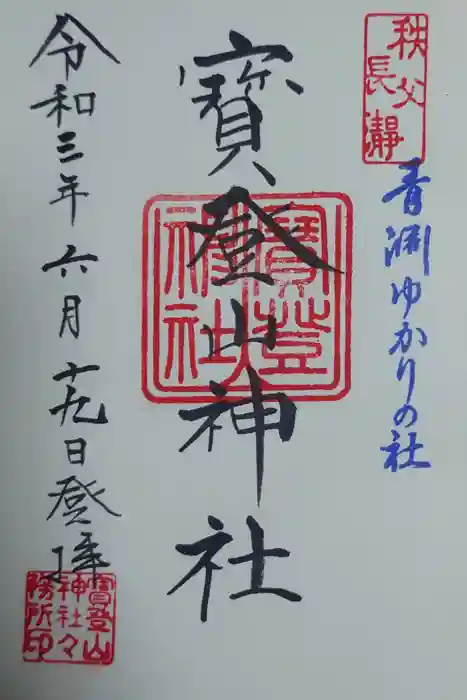 秩父
長瀞
青淵ゆかりの社
寳登山神社
寳登
神社
令和三年六月十九日登拝
寳登山
神社々
務所印